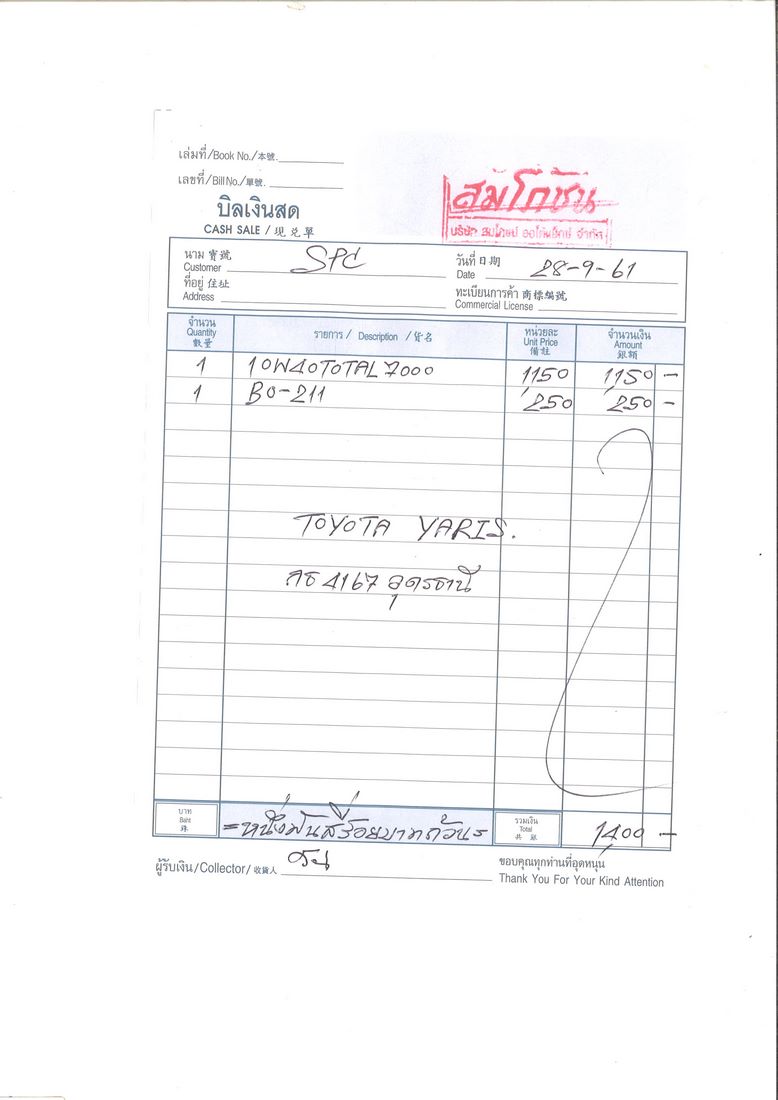 เล่มที่/Book No./本號.
เลขที่/Bill No./單號.
บิลเงินสด
CASH SALE / 現兑單
ส้มโกชัน
นาม 寶號 Customer SPC
วันที่ 日期 Date 28-9-61
ที่อยู่ 住址 Address
ทะเบียนการค้า 商標編號 Commercial License
จำนวน Quantity 數量 รายการ / Description / 貨名 หน่วยละ Unit Price 備註 จำนวนเงิน Amount 銀額
1 10W40 TOTAL 7000 1150 1150 -
1 BO-211 250 250 -
TOYOTA YARIS.
4167 อุดรธานี
บาท Baht 銖 =หนึ่งพันสี่ร้อยบาทถ้วน= รวมเงิน Total 共銀 1400 -
ผู้รับเงิน/Collector/收貨人
ขอบคุณทุกท่านที่อุดหนุน
Thank You For Your Kind Attention